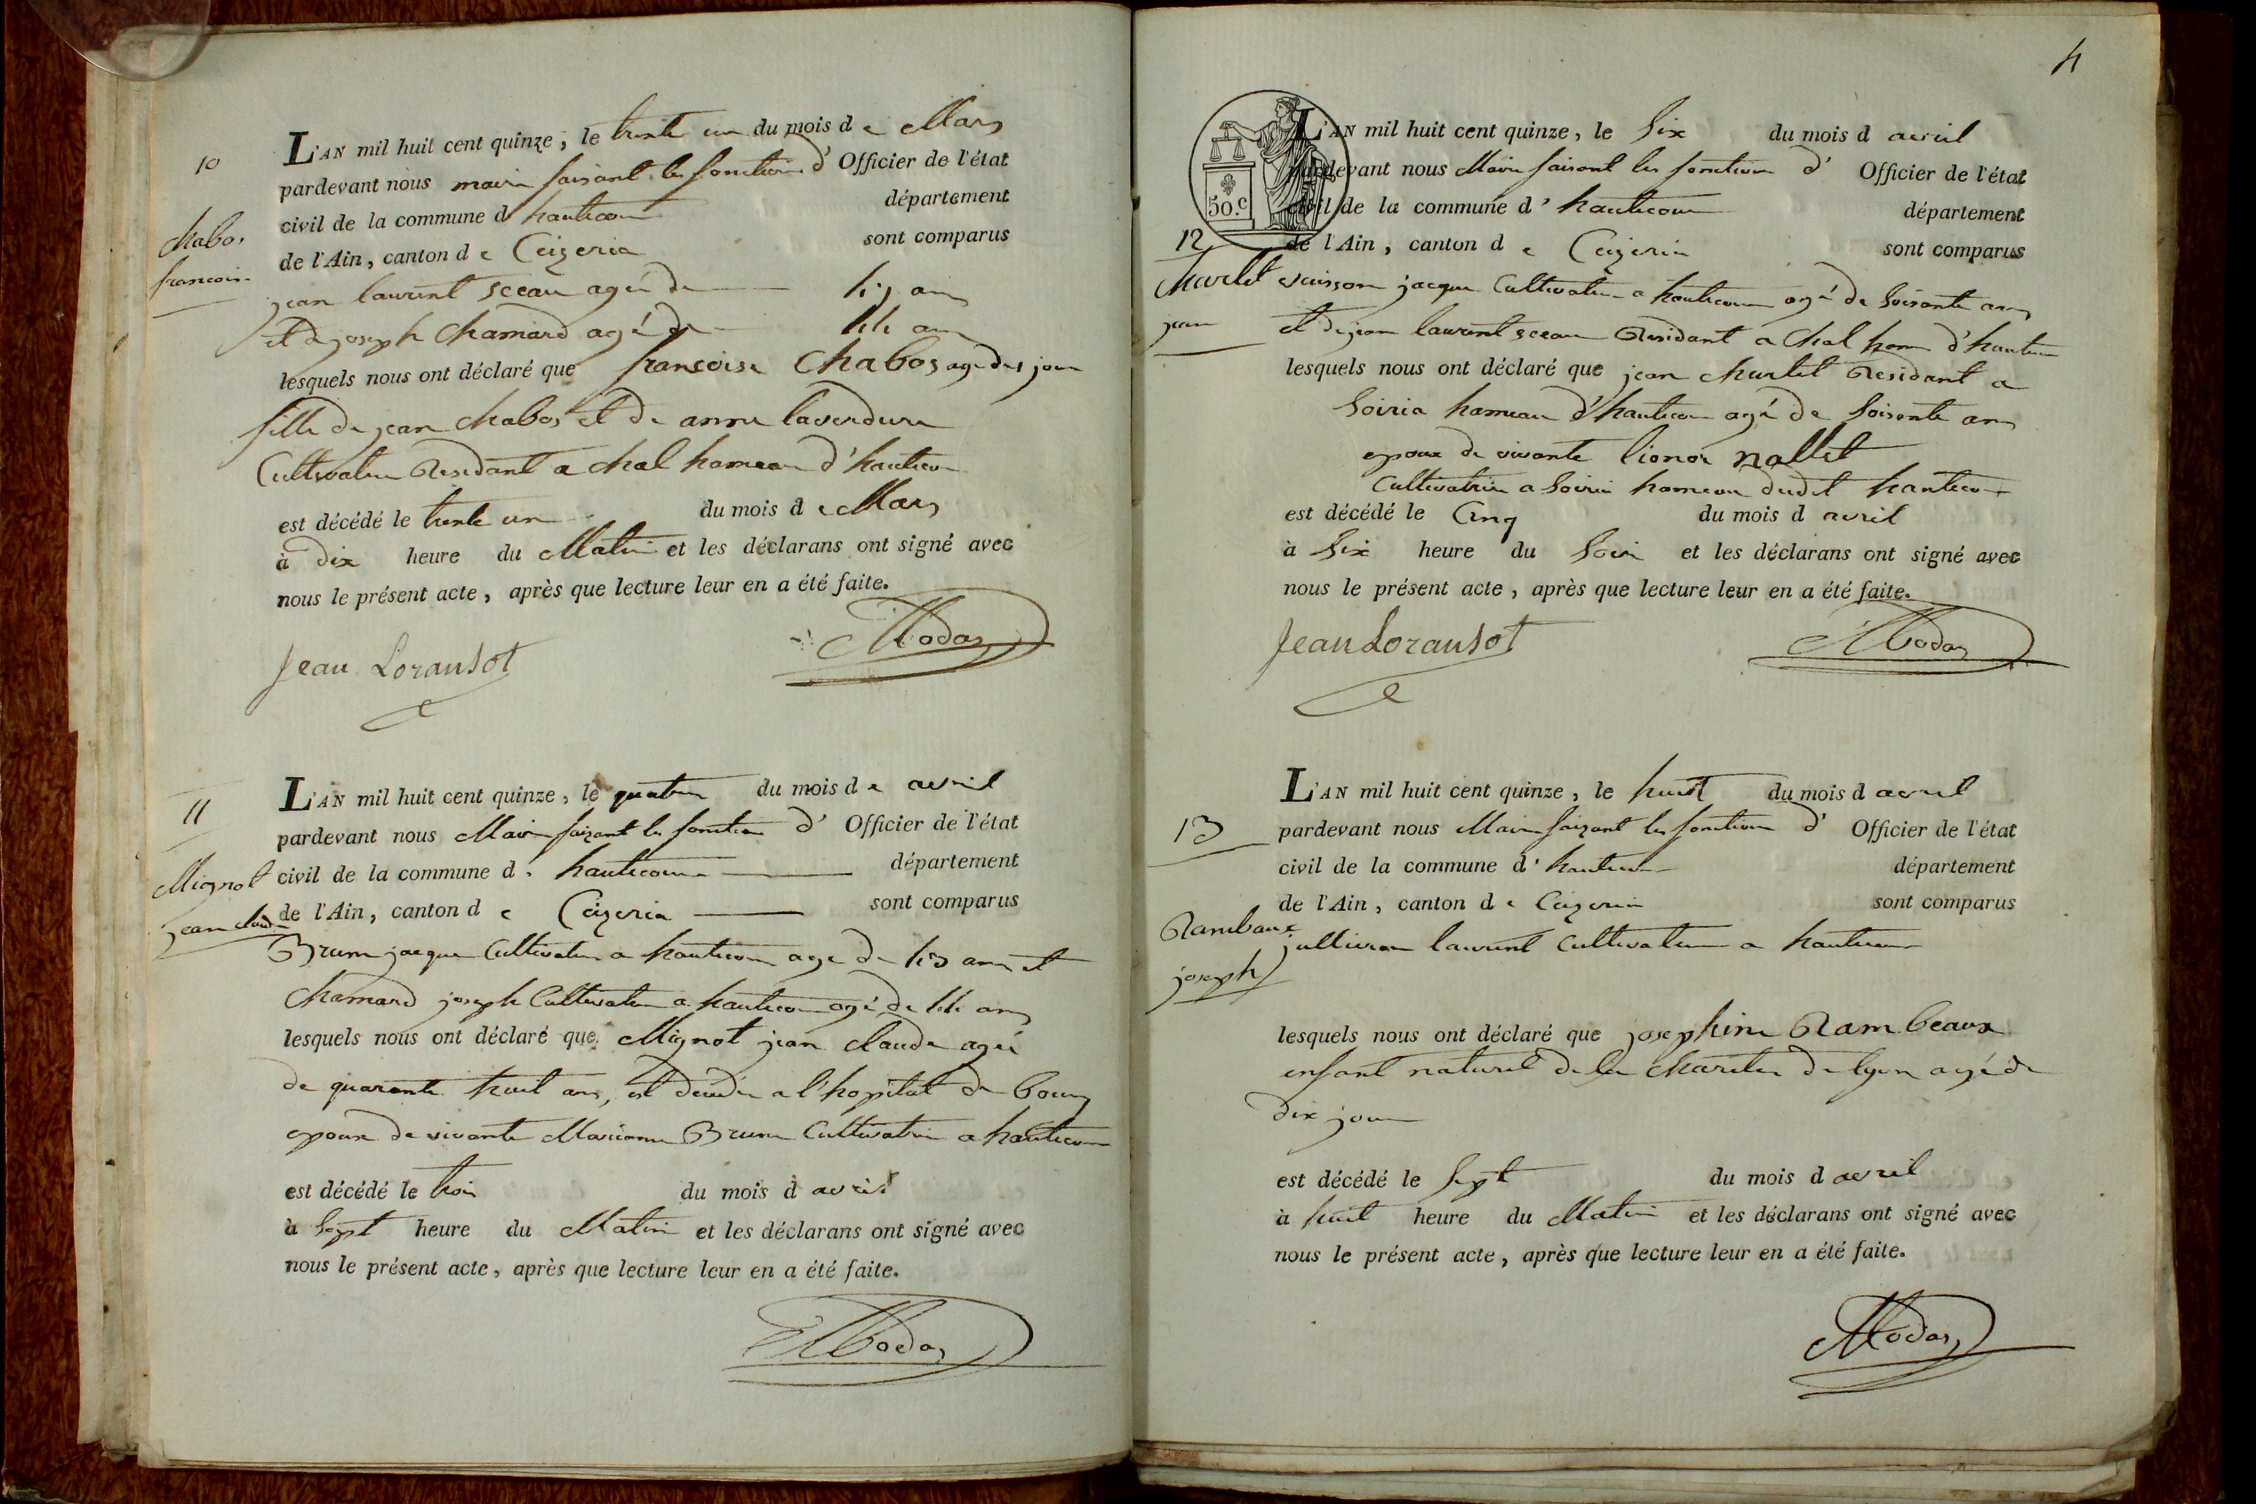 10
chabos
francoise
L'AN mil huit cent quinze, le trente un du mois d e Mars
pardevant nous maire faisant les fonction d' Officier de l'état
civil de la commune d hautecour département
de l'Ain, canton d e Ceizeria sont comparus
jean laurent sceau agé de ans
et de joseph Chamard agé de 44 ans
lesquels nous ont déclaré que francoise Chabos agé de jour
fille de jean chabos et de anne laverdure
Cultivateur Residant a chal hameau d'hautecour
est décédé le trente un du mois d e Mars
à dix heure du Matin et les déclarans ont signé avec
nous le présent acte, après que lecture leur en a été faite.
Jean Loransot Modas
11
Mignot
jean claude
L'AN mil huit cent quinze, le quatre du mois d e avril
pardevant nous Maire faizant les fonction d' Officier de l'état
civil de la commune d. hautecour département
de l'Ain, canton d e Ceizeria sont comparus
Brun jacque Cultivateur a hautecour age de ans et
Chamard joseph Cultivateur a hautecour agé de 44 ans
lesquels nous ont déclaré que Mignot jean claude agé
de quarante huit ans, est décédé a l'hopital de bourg
epoux de vivante Marianne Brun Cultivatrice a hautecour
est décédé le trois du mois d avril
à Sept heure du Matin et les déclarans ont signé avec
nous le présent acte, après que lecture leur en a été faite.
Modas
4
50.c
12
Churlet
jean
L'AN mil huit cent quinze, le Six du mois d avril
pardevant nous Maire faisant les fonction d' Officier de l'état
civil de la commune d' hautecour département
de l'Ain, canton d e Ceizeria sont comparus
vuisson jacque Cultivateur a hautecour agé de Soisante ans
et de jean laurent sceau Residant a Chal ham d'hautecour
lesquels nous ont déclaré que jean churlet Residant a
Soiria hameau d'hautecour agé de Soisente ans
epoux de vivante lionor nallet
Cultivatrice a Soiria hameau dudit hautecour
est décédé le Cinq du mois d avril
à Six heure du Soir et les déclarans ont signé avec
nous le présent acte, après que lecture leur en a été faite.
Jean Loransot Modas
13
Rambaux
joseph
L'AN mil huit cent quinze, le huit du mois d avril
pardevant nous Maire faizant les fonction d' Officier de l'état
civil de la commune d' hautecour département
de l'Ain, canton d e Ceizeria sont comparus
jullieron laurent Cultivateur a hautecour
lesquels nous ont déclaré que josephine Rambeaux
enfant naturel de la charitée de lyon agé de
dix jour
est décédé le Sept du mois d avril
à huit heure du Matin et les déclarans ont signé avec
nous le présent acte, après que lecture leur en a été faite.
Modas